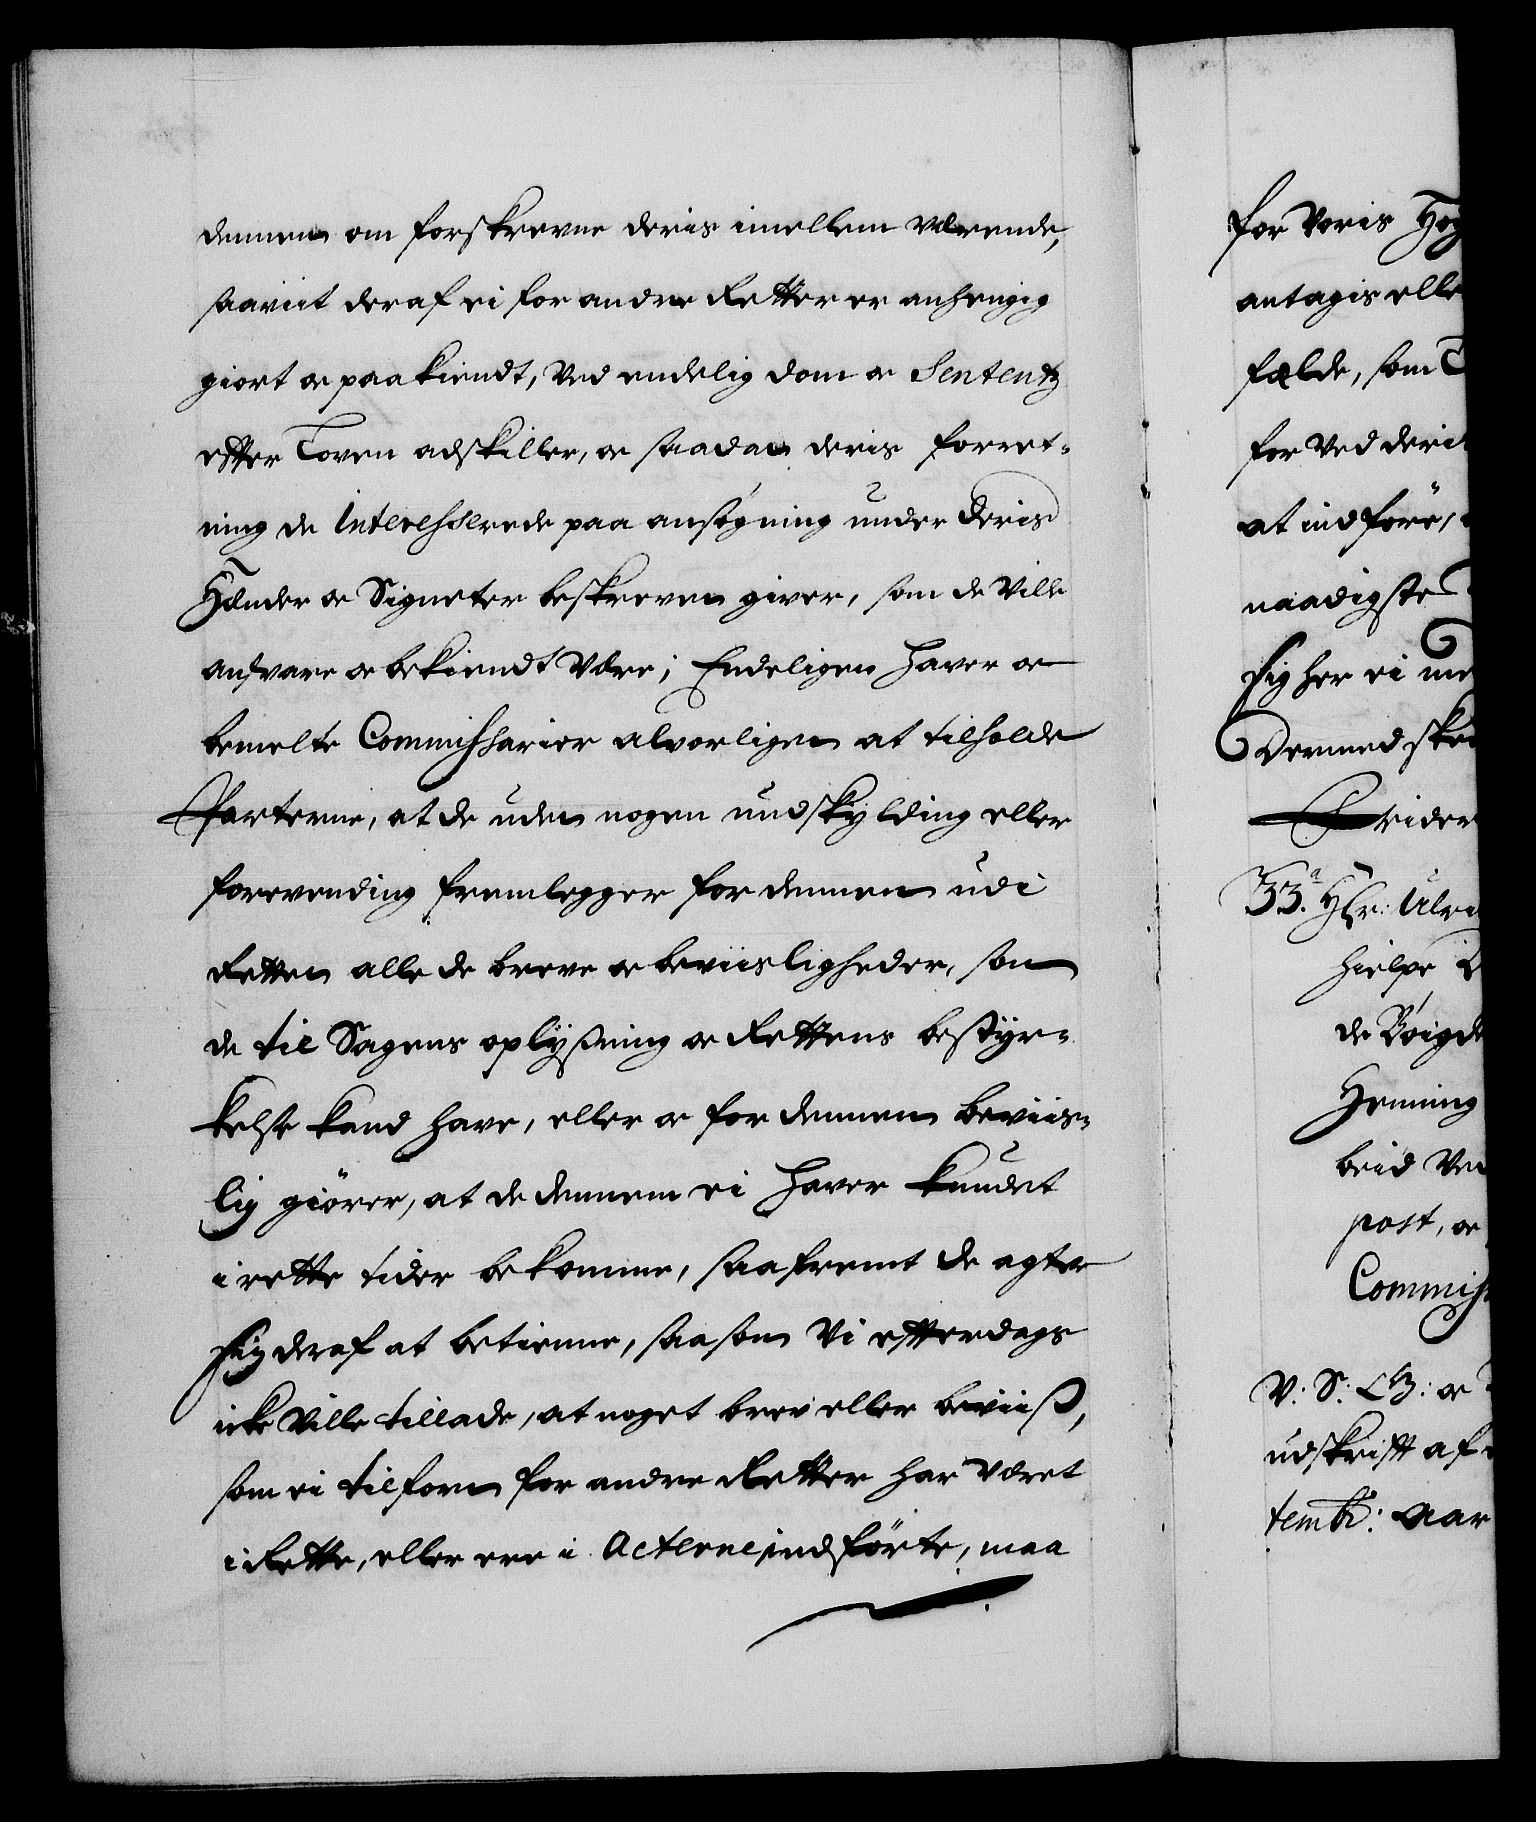 dennem om forskrevne deris imellem værende,
saaviit deraf ei for andre Retter er anhengig
giort oc paakiendt, ved endelig dom oc Sententz
effter Loven adskiller, oc saadan deris forret-
ning de Interesserede paa ansøgning under deris
Hænder oc Signeter beskreven giver, som de ville
andsvare oc bekiendt være; Endeligen haver oc
bemelte Commissarier alvorligen at tilholde
Parterne, at de uden nogen undskylding eller
forevending fremlegger for dennem udi
Retten alle de breve oc beviisligheder, som
de til Sagens oplysning oc Rettens bestyr-
kelse kand have, eller oc for dennem beviis-
lig giører, at de dennem ei haver kundet
i rette tider bekomme, saafremt de agter
sig deraf at betienne, saasom Vi efftterdags
icke ville tillade, at noget brev eller beviiß,
som ei tilforn for andre Retter har været
i Rette, eller ere i Acterne indførte, maa
for Voris Høy
antagis elle
fælde, som
for ved deri
at indføre,
naadigste
sig her ei
Dermed ske
33. Hr: Ulri
hielpe
de Bøigde
Henning
beid ved
post, oc
Commiss
V: S: G: oc
udskrifft af
temb: Aar